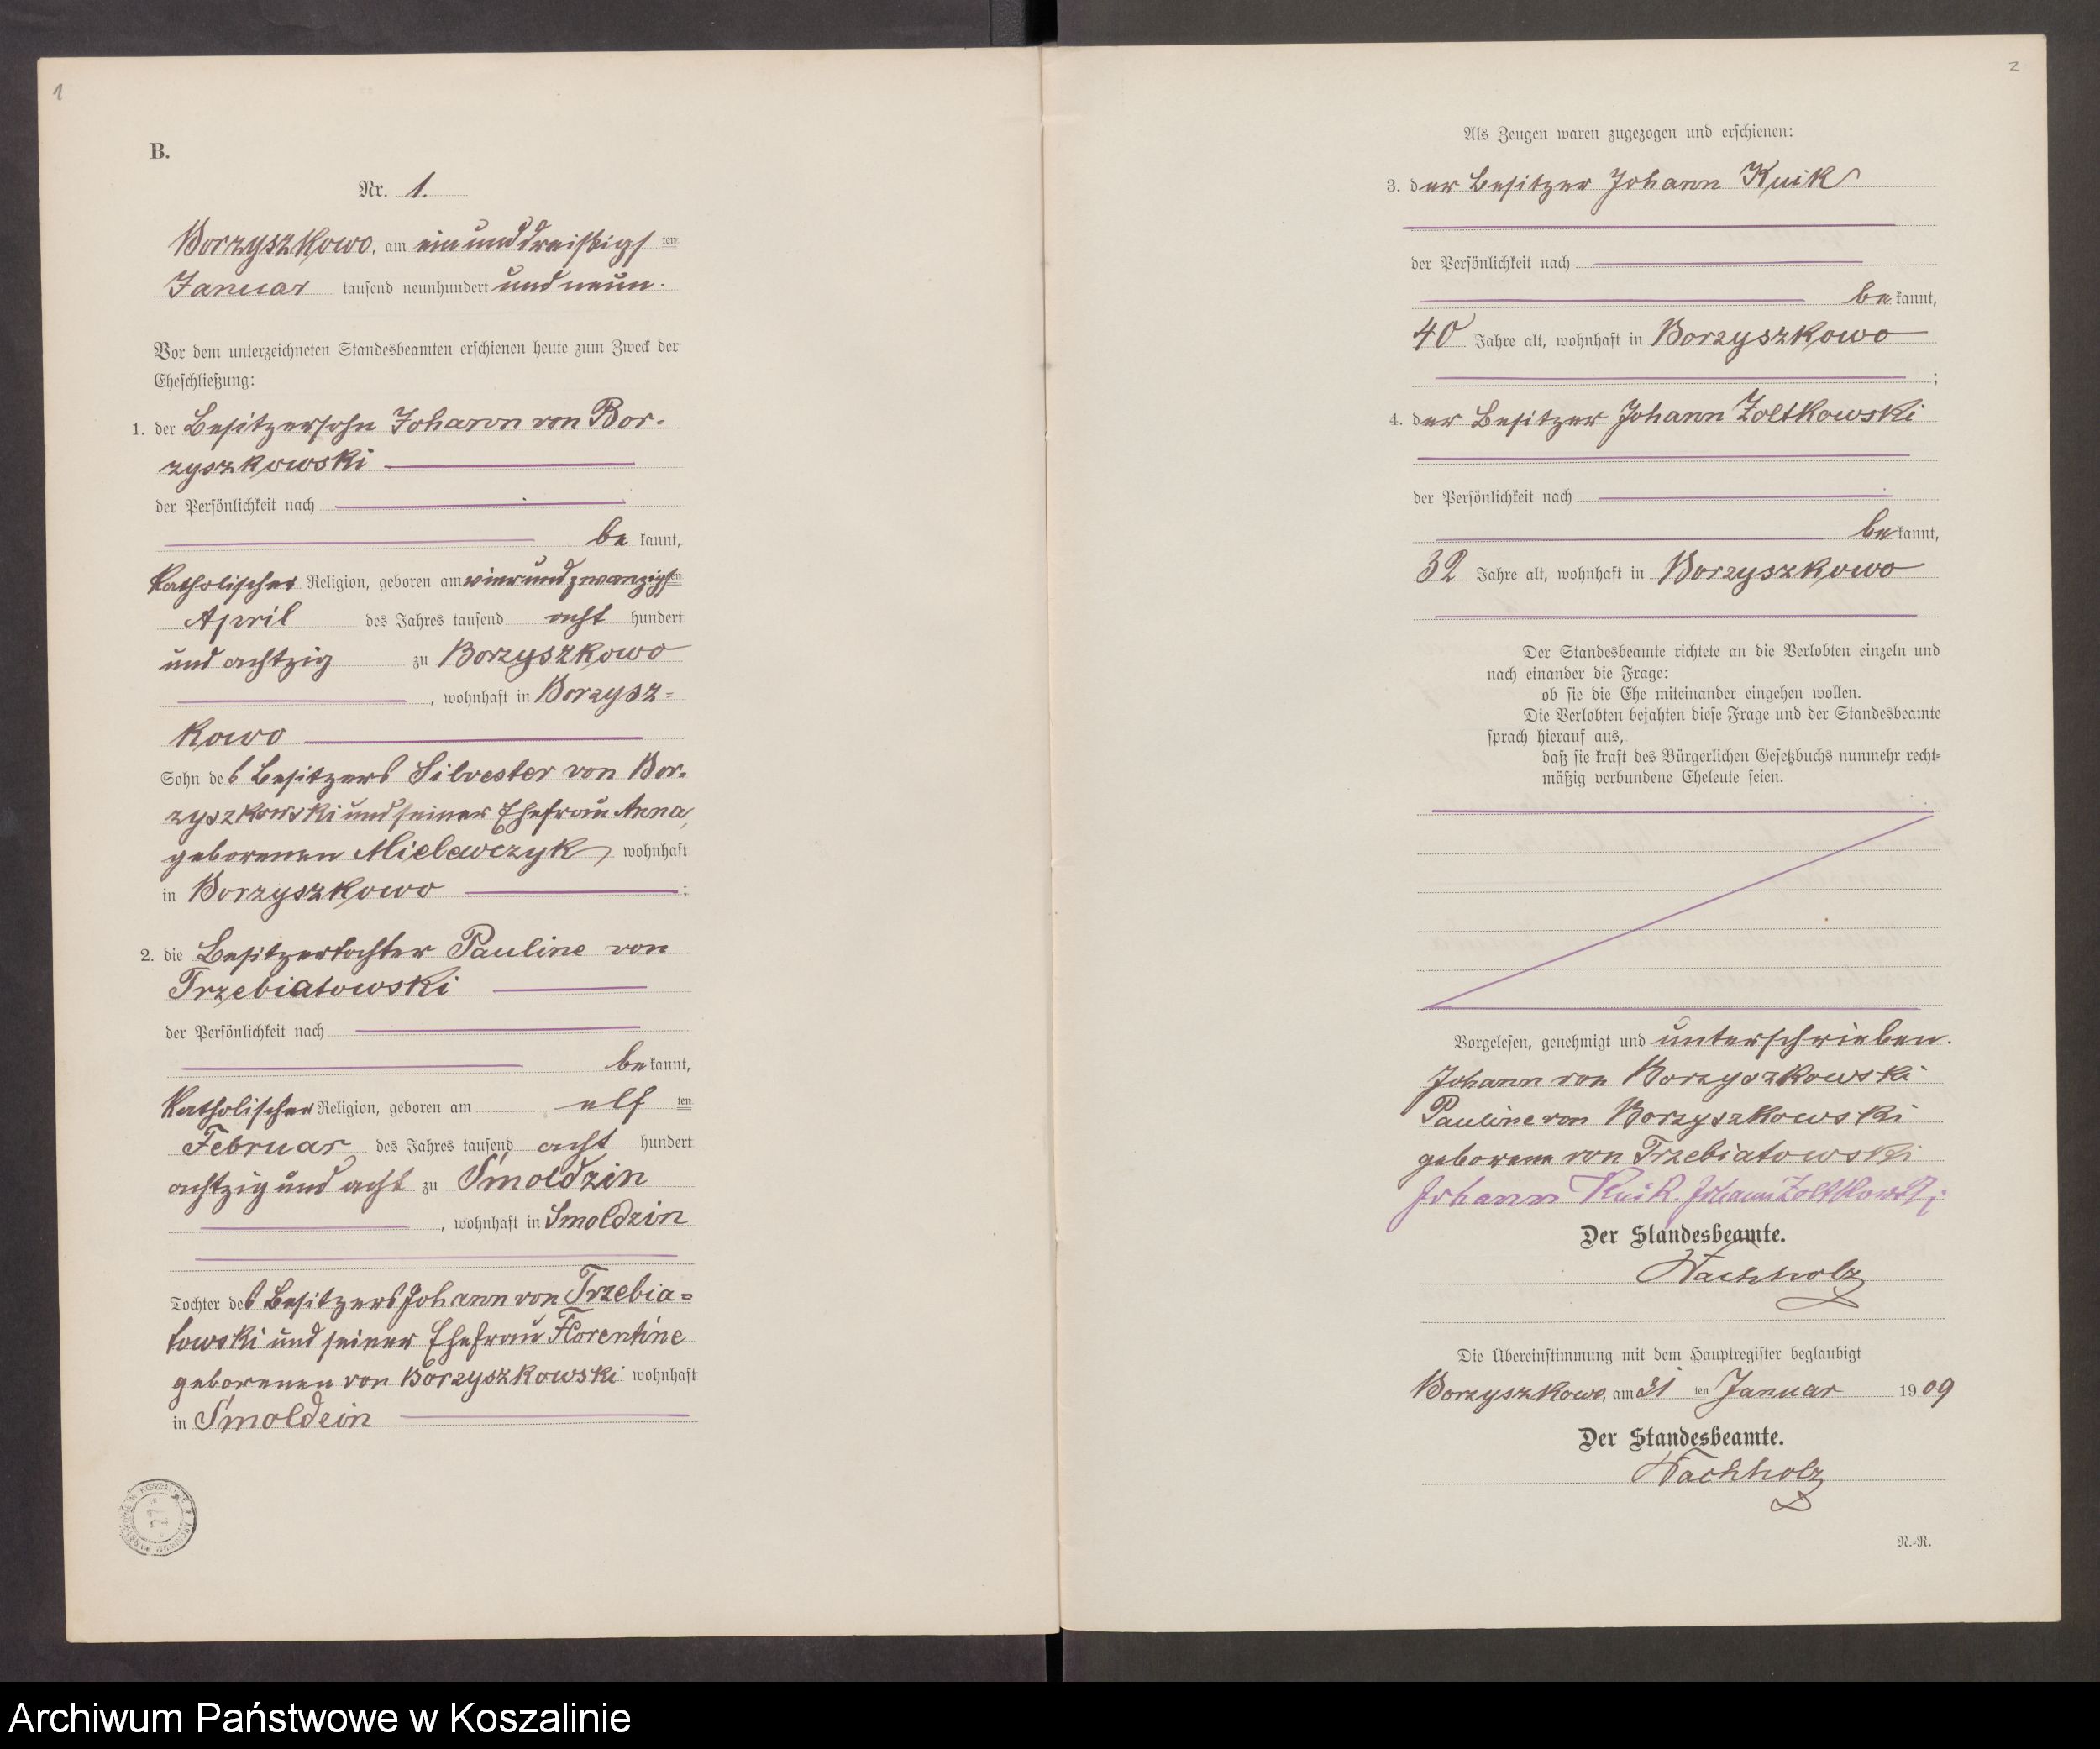 1
B.
Nr. 1.
Borzyszkowo, am einunddreißigsten
Januar tausend neunhundert und neun.
Vor dem unterzeichneten Standesbeamten erschienen heute zum Zweck der
Eheschließung:
1. der Besitzersohn Johann von Bor-
zyszkowski
der Persönlichkeit nach
bekannt,
katholischer Religion, geboren am vierundzwanzigsten
April des Jahres tausend acht hundert
und achtzig zu Borzyszkowo
, wohnhaft in Borzysz=
kowo
Sohn des Besitzers Silvester von Bor-
zyszkowski und seiner Ehefrau Anna,
geborenen Mielewczyk, wohnhaft
in Borzyszkowo ;
2. die Besitzertochter Pauline von
Trzebiatowski
der Persönlichkeit nach
bekannt,
katholischer Religion, geboren am elf ten
Februar des Jahres tausend acht hundert
achtzig und acht zu Smoldzin
, wohnhaft in Smoldzin
Tochter des Besitzers Johann von Trzebia=
towski und seiner Ehefrau Florentine
geborenen von Borzyszkowski wohnhaft
in Smoldzin
2
Als Zeugen waren zugezogen und erschienen:
3. der Besitzer Johann Kuik
der Persönlichkeit nach
bekannt,
40 Jahre alt, wohnhaft in Borzyszkowo
;
4. der Besitzer Johann Zoltkowski
der Persönlichkeit nach
bekannt,
32 Jahre alt, wohnhaft in Borzyszkowo
Der Standesbeamte richtete an die Verlobten einzeln und
nach einander die Frage:
ob sie die Ehe miteinander eingehen wollen.
Die Verlobten bejahten diese Frage und der Standesbeamte
sprach hierauf aus,
daß sie kraft des Bürgerlichen Gesetzbuchs nunmehr recht=
mäßig verbundene Eheleute seien.
Vorgelesen, genehmigt und unterschrieben.
Johann von Borzyszkowski
Pauline von Borzyszkowski
geborene von Trzebiatowski
Johann Kuik. Johann Zoltkowski
Der Standesbeamte.
Wachholz
Die Übereinstimmung mit dem Hauptregister beglaubigt
Borzyszkowo, am 31 ten Januar 1909
Der Standesbeamte.
Wachholz
N.=R.
Archiwum Państwowe w Koszalinie